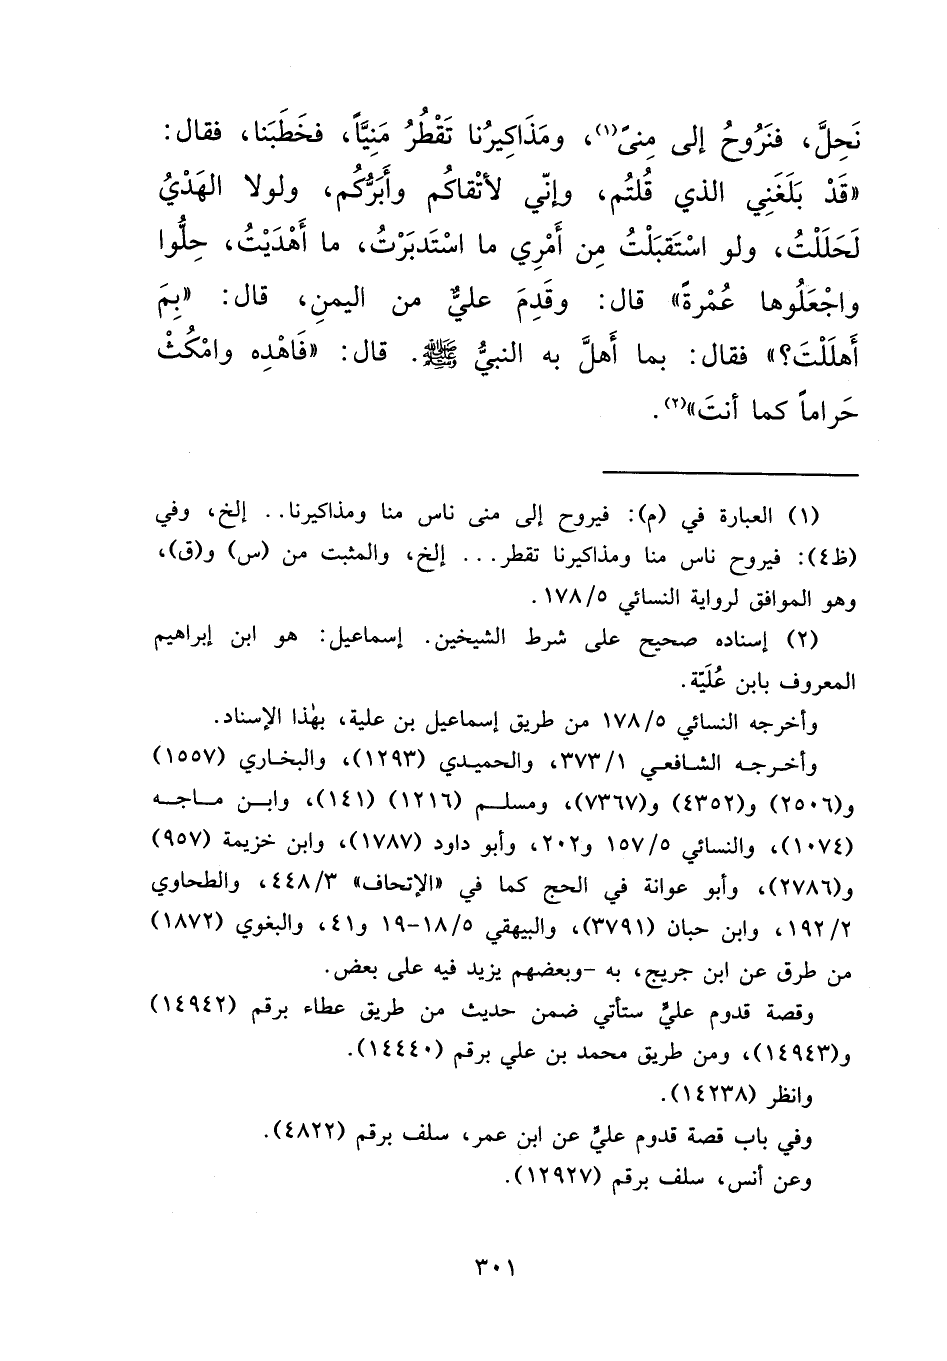 نَحِلَّ، فنَرُوحُ إلى مِنىً(١)، ومَذَاكِيرُنا تَقْطُرُ مَنِيَّاً، فخَطَبَنا، فقال:
«قَدْ بَلَغَنِي الذي قُلتُم، وإنّي لأتْقاكُم وأَبَرُّكُم، ولولا الهَدْيُ
لَحَلَلْتُ، ولو اسْتَقبَلْتُ مِن أَمْرِي ما اسْتَدبَرْتُ، ما أَهْدَيْتُ، حِلُّوا
واجْعَلُوها عُمْرةً» قال: وقَدِمَ عليٌّ من اليمنِ، قال: «بِمَ
أَهلَلْتَ؟» فقال: بما أَهلَّ به النبيُّ ﷺ. قال: «فَاهْدِه وامْكُثْ
حَراماً كما أنتَ»(٢).
(١) العبارة في (م): فيروح إلى منى ناس منا ومذاكيرنا.. إلخ، وفي
(ظ٤): فيروح ناس منا ومذاكيرنا تقطر... إلخ، والمثبت من (س) و(ق)،
وهو الموافق لرواية النسائي ١٧٨/٥.
(٢) إسناده صحيح على شرط الشيخين. إسماعيل: هو ابن إبراهيم
المعروف بابن عُلَيّة.
وأخرجه النسائي ١٧٨/٥ من طريق إسماعيل بن علية، بهٰذا الإسناد.
وأخرجه الشافعي ٣٧٣/١، والحميدي (١٢٩٣)، والبخاري (١٥٥٧)
و(٢٥٠٦) و(٤٣٥٢) و(٧٣٦٧)، ومسلم (١٢١٦) (١٤١)، وابن ماجه
(١٠٧٤)، والنسائي ١٥٧/٥ و٢٠٢، وأبو داود (١٧٨٧)، وابن خزيمة (٩٥٧)
و(٢٧٨٦)، وأبو عوانة في الحج كما في «الإتحاف» ٤٤٨/٣، والطحاوي
١٩٢/٢، وابن حبان (٣٧٩١)، والبيهقي ١٨/٥-١٩ و٤١، والبغوي (١٨٧٢)
من طرق عن ابن جريج، به -وبعضهم يزيد فيه على بعض.
وقصة قدوم عليٍّ ستأتي ضمن حديث من طريق عطاء برقم (١٤٩٤٢)
و(١٤٩٤٣)، ومن طريق محمد بن علي برقم (١٤٤٤٠).
وانظر (١٤٢٣٨).
وفي باب قصة قدوم عليٍّ عن ابن عمر، سلف برقم (٤٨٢٢).
وعن أنس، سلف برقم (١٢٩٢٧).
٣٠١